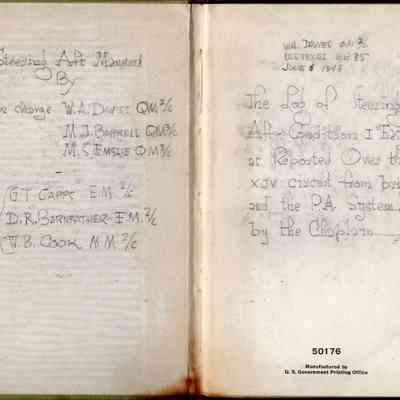 Steering Aft Manned
By
In charge W.A. Davies QM 2/c
M.J. QM3/c
M.S. Emslie QM 3/c
G.T. Capps E.M. 2/c
D.R. Barnfather F.M. 2/c
Cook M.M. 2/c
WA. Davies QM 2/c
USS Texas BB 35
June 6 1944
The Log of Steering
Aft Condition I
as Reported Over the
XJV circuit from
and the P.A. System
by the Chaplain
50176
Manufactured by
U. S. Government Printing Office